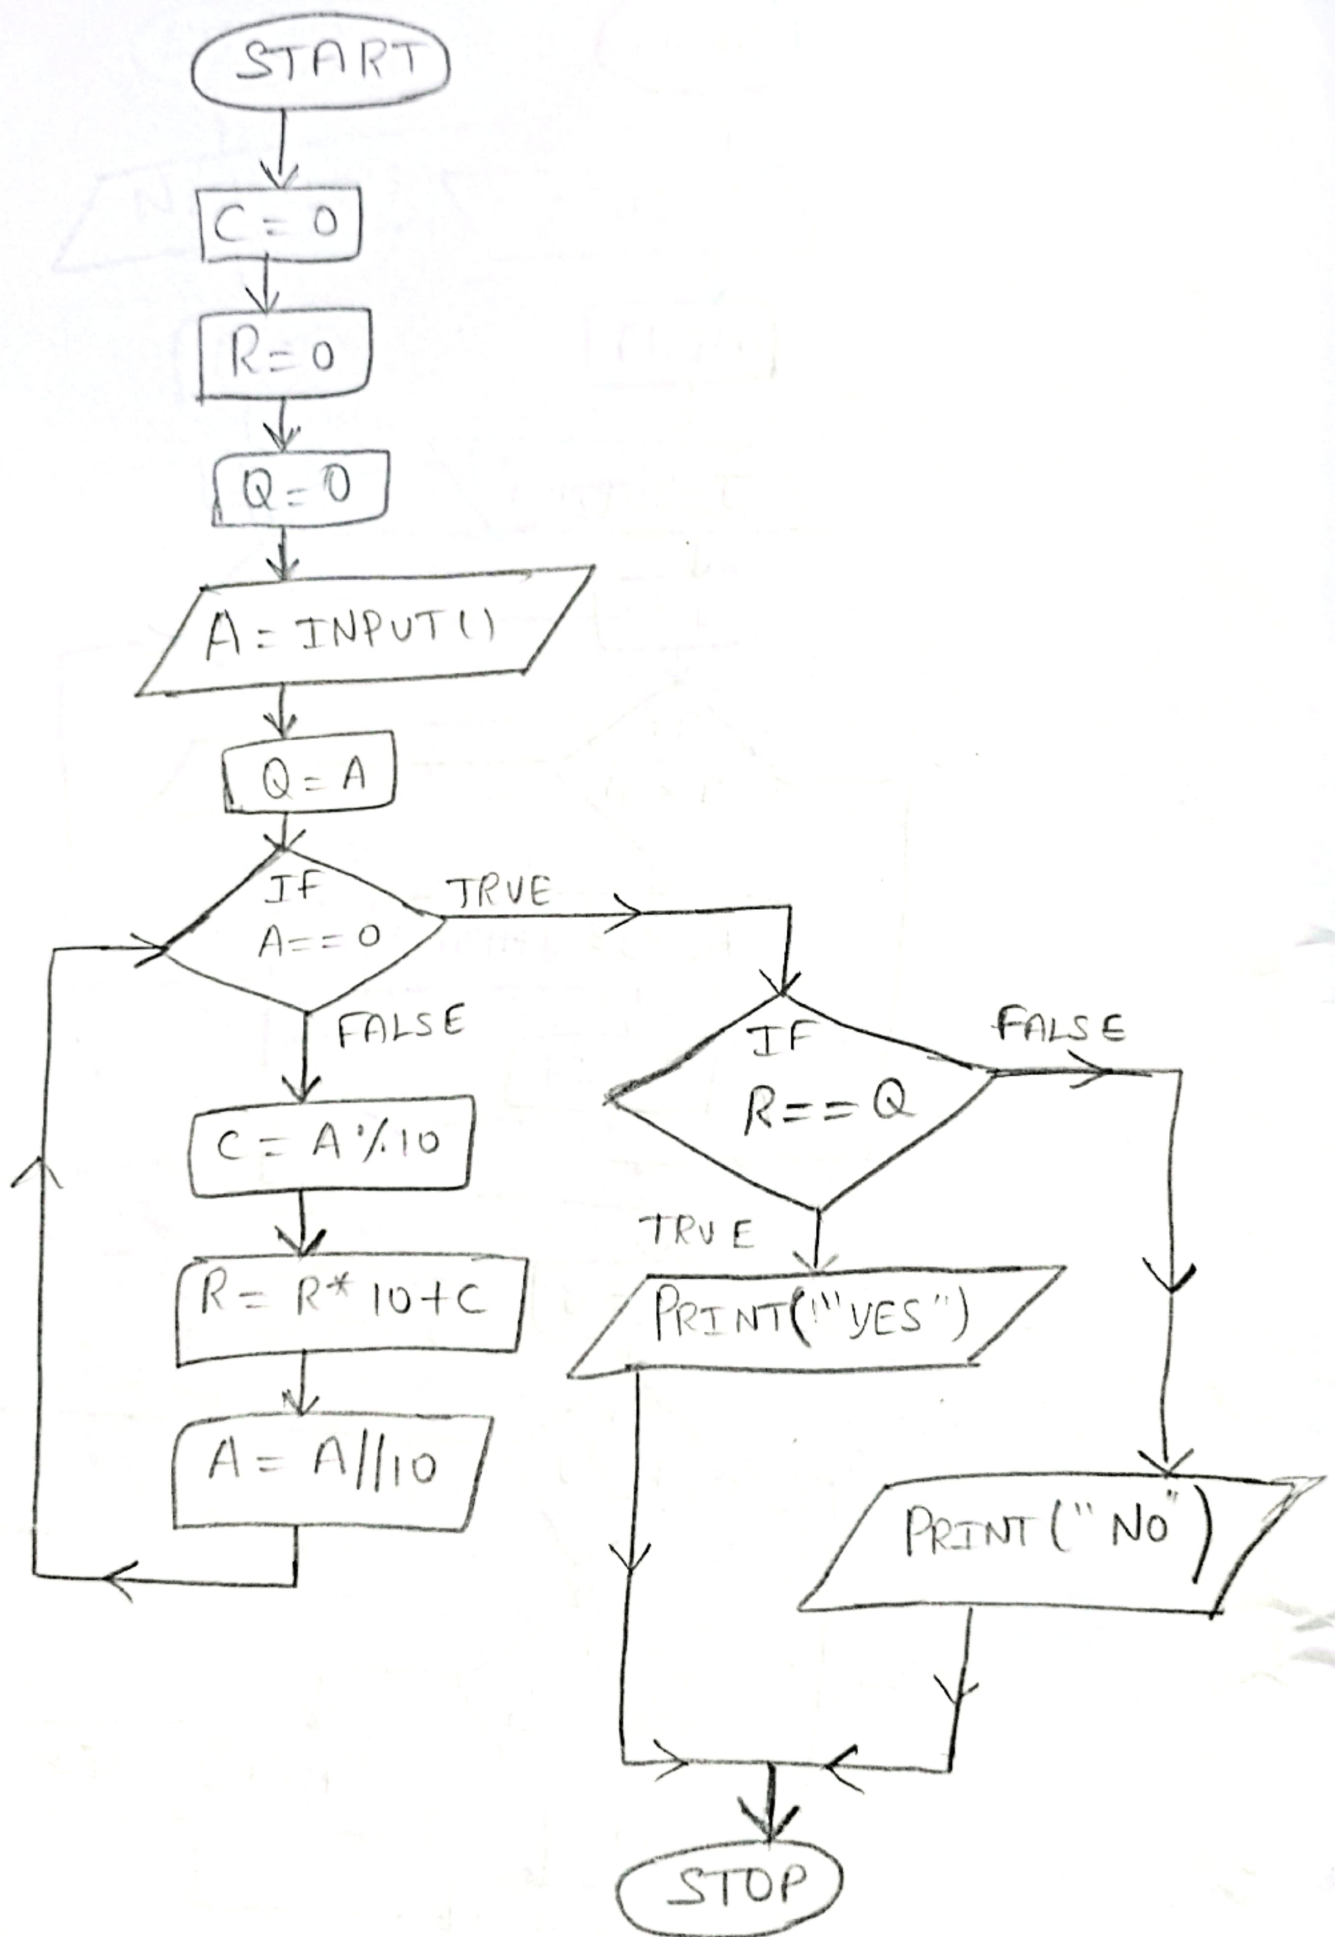 START
C = 0
R = 0
Q = 0
A = INPUT()
Q = A
IF
A == 0
TRUE
FALSE
C = A % 10
R = R * 10 + C
A = A // 10
IF
R == Q
FALSE
TRUE
PRINT(""YES")
PRINT("NO")
STOP